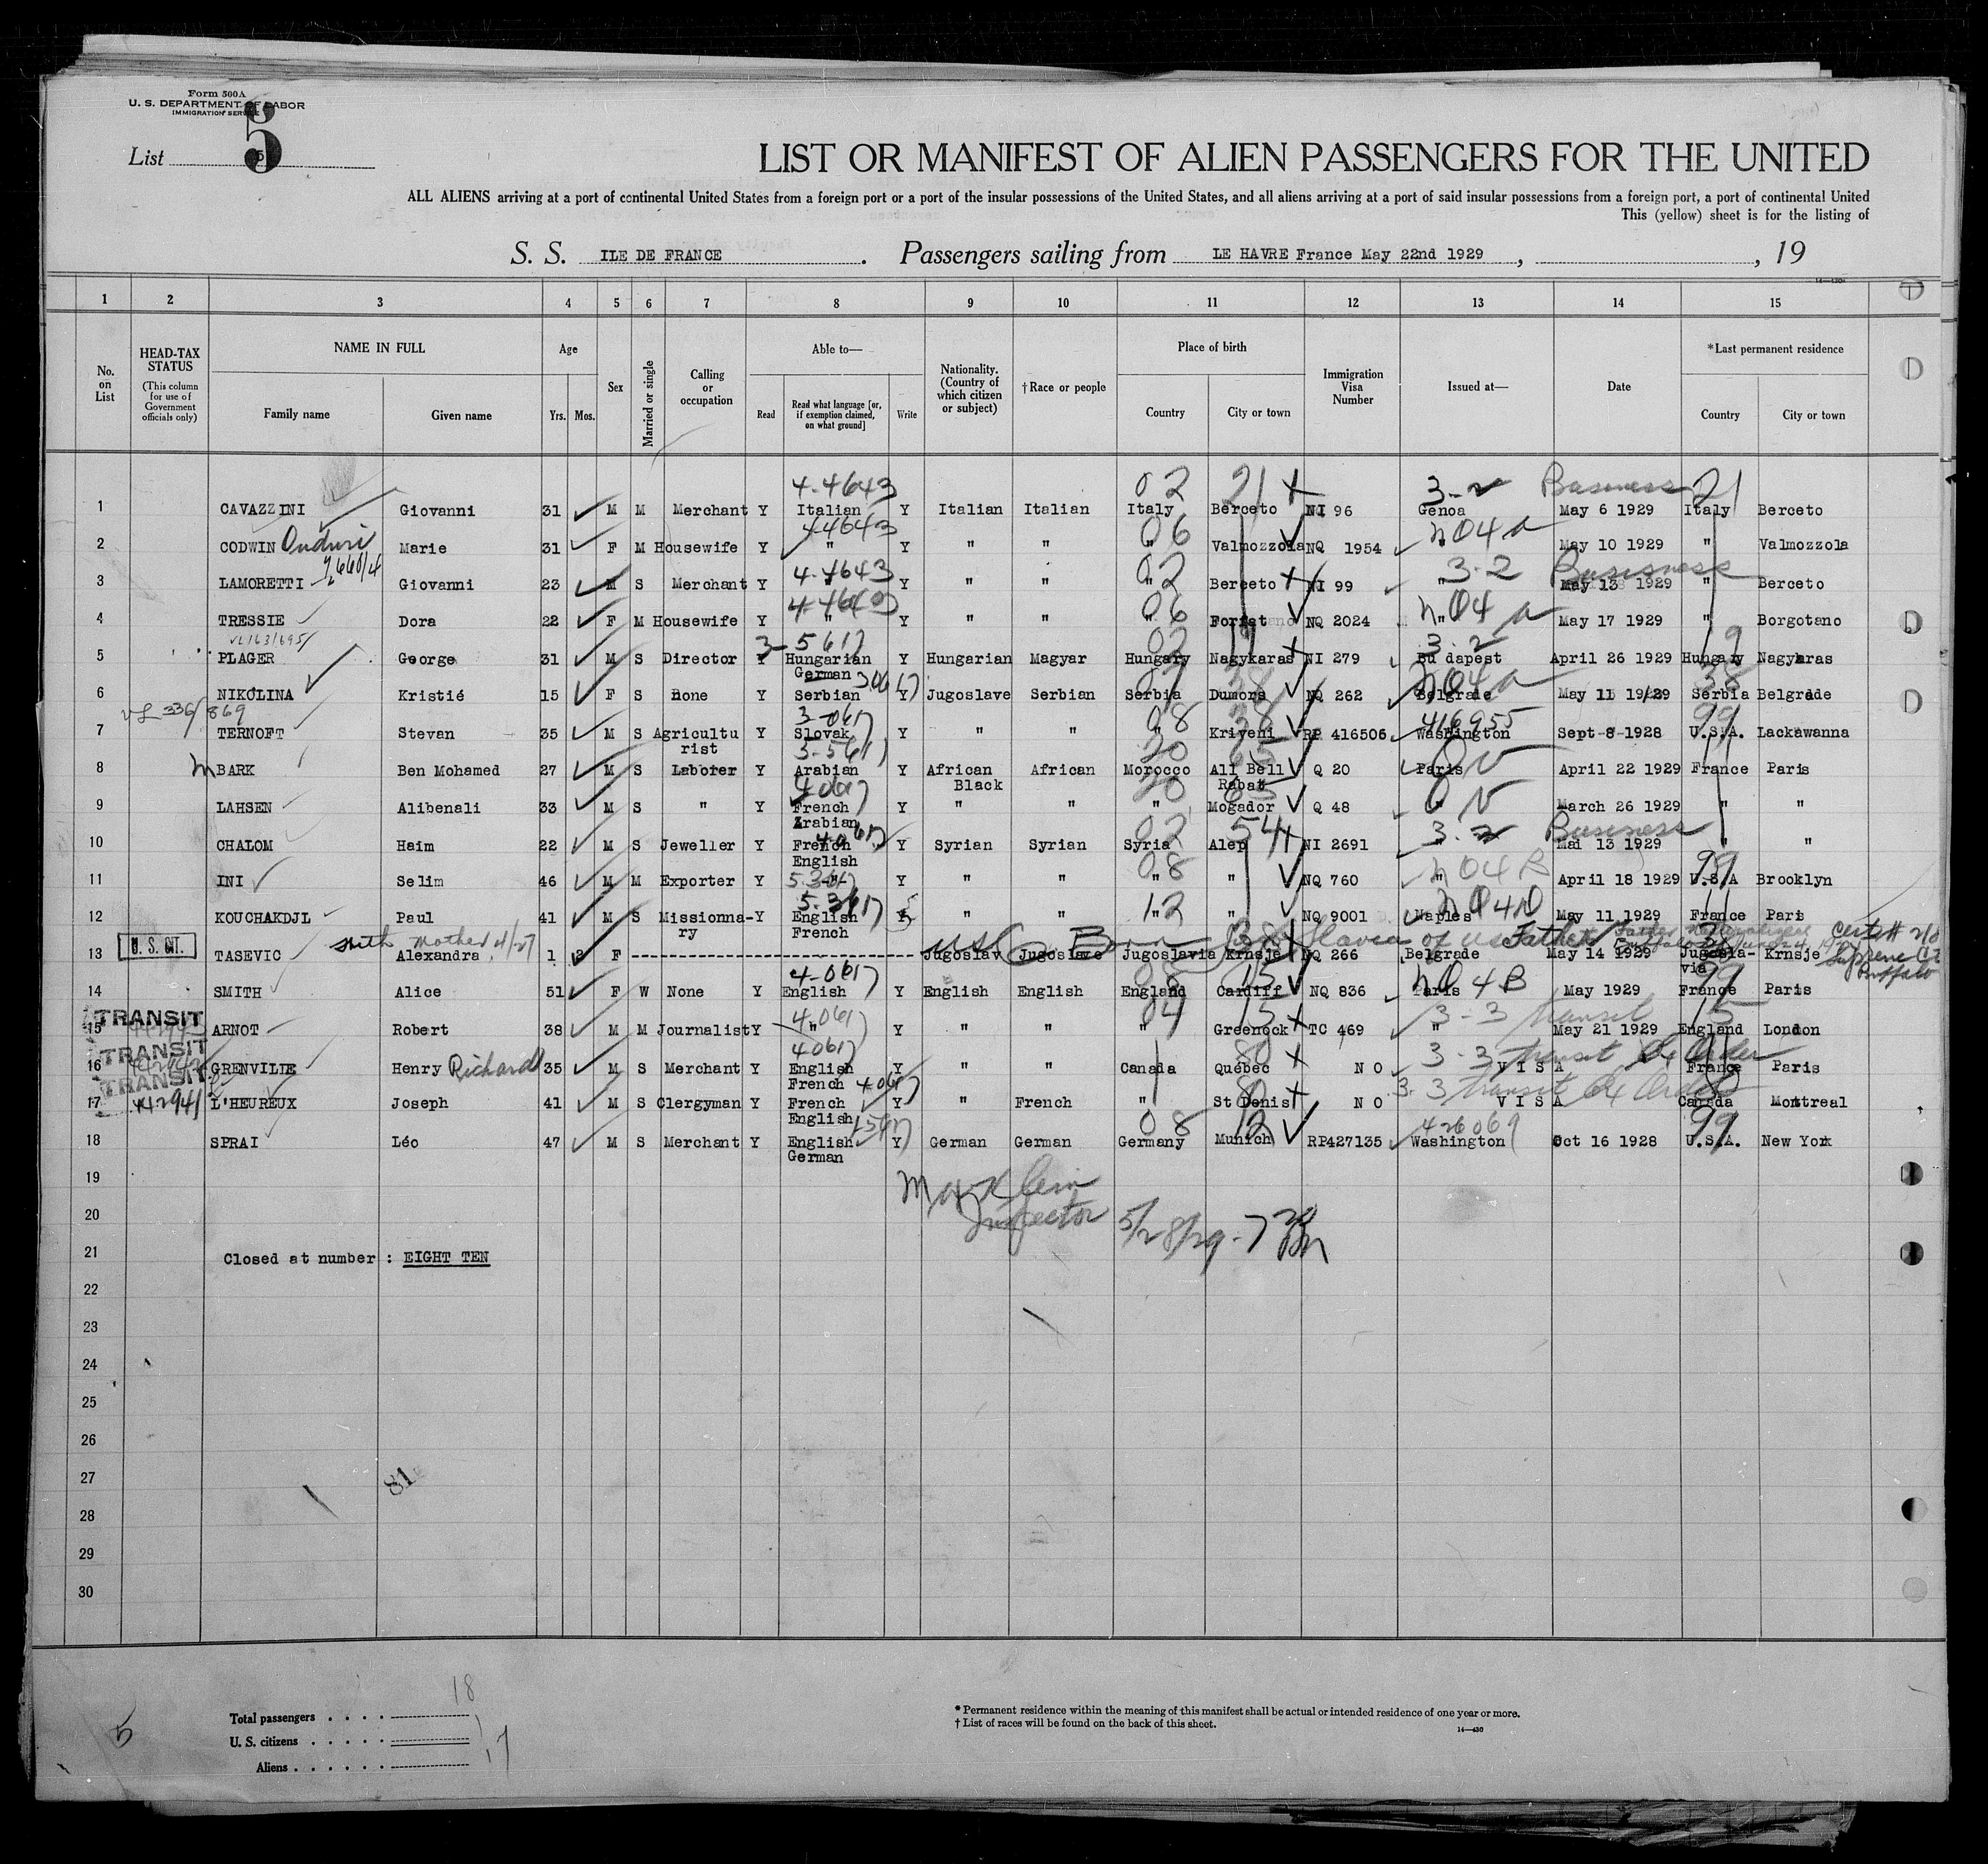 Form 500A
U. S. DEPARTMENT OF LABOR
IMMIGRATION SERVICE
List 5
5
LIST OR MANIFEST OF ALIEN PASSENGERS FOR THE UNITED
ALL ALIENS arriving at a port of continental United States from a foreign port or a port of the insular possessions of the United States, and all aliens arriving at a port of said insular possessions from a foreign port, a port of continental United
This (yellow) sheet is for the listing of
S. S. ILE DE FRANCE . Passengers sailing from LE HAVRE France May 22nd 1929 , , 19
1 2 3 4 5 6 7 8 9 10 11 12 13 14 15
No. on List
HEAD-TAX STATUS (This column for use of Government officials only)
NAME IN FULL Family name Given name
Age Yrs. Mos.
Sex
Married or single
Calling or occupation
Able to— Read Read what language [or, if exemption claimed, on what ground] Write
Nationality. (Country of which citizen or subject)
†Race or people
Place of birth Country City or town
Immigration Visa Number
Issued at—
Date
*Last permanent residence Country City or town
4-4643 02 21 + 3-2 Business 21
1 CAVAZZINI Giovanni 31 M M Merchant Y Italian Y Italian Italian Italy Berceto NI 96 Genoa May 6 1929 Italy Berceto
44643 06 n04a
2 CODWIN Marie 31 F M Housewife Y " Y " " " Valmozzola NQ 1954 " May 10 1929 " Valmozzola
4-4643 02 3-2 Business
3 LAMORETTI Giovanni 23 M S Merchant Y " Y " " " Berceto NI 99 " May 13 1929 " Berceto
06 n04a
4 TRESSIE Dora 22 F M Housewife Y " Y " " " NQ 2024 " May 17 1929 " Borgotano
3-5617 02 3-2
5 PLAGER George 31 M S Director Y Hungarian Y Hungarian Magyar Hungary Nagykaras NI 279 Bu dapest April 26 1929 Hungary Nagykaras
German
6 NIKOLINA Kristié 15 F S none Y Serbian Y Jugoslave Serbian Serbia Dumora NQ 262 Belgrade May 11 1929 Serbia Belgrade
3-0617 08 38 416955 99
7 TERNOFT Stevan 35 M S Agricultu Y Slovak Y " " " Kriveni RP 416506 Washington Sept-8-1928 U.S.A. Lackawanna
rist
3-5617
8 BARK Ben Mohamed 27 M S Laborer Y Arabian Y African African Morocco Ali Bell Q 20 Paris April 22 1929 France Paris
Black Rabat
9 LAHSEN Alibenali 33 M S " Y French Y " " " Mogador Q 48 " March 26 1929 " "
Arabian
02 54 + 3-2 Business
10 CHALOM Haim 22 M S Jeweller Y French Y Syrian Syrian Syria Alep NI 2691 " Mai 13 1929 " "
English
08 n04B 99
11 INI Selim 46 M M Exporter Y " Y " " " " NQ 760 " April 18 1929 U.S.A Brooklyn
12
12 KOUCHAKDJL Paul 41 M S Missionna- Y English Y " " " " NQ 9001 Naples May 11 1929 France Paris
ry French
U. S. CIT.
with mother 4/27
13 TASEVIC Alexandra 1 2 F Jugoslav Jugoslave Jugoslavia Krnsje NQ 266 Belgrade May 14 1929 Jugosla- Krnsje
via
4-0617 08 15 n04B 99
14 SMITH Alice 51 F W None Y English Y English English England Cardiff NQ 836 Paris May 1929 France Paris
TRANSIT
4-0617 04 15 3-3 transit 15
15 ARNOT Robert 38 M M Journalist Y " Y " " " Greenock TC 469 " May 21 1929 England London
TRANSIT
40617 80 + 3-3 transit
16 GRENVILLE Henry Richard 35 M S Merchant Y English Y " " Canada Québec NO VISA France Paris
French
TRANSIT
3-3 transit
17 L'HEUREUX Joseph 41 M S Clergyman Y French Y " French " St Denis NO VISA Canada Montreal
English
08 12 426069 99
18 SPRAI Léo 47 M S Merchant Y English Y German German Germany Munich RP427135 Washington Oct 16 1928 U.S.A. New York
German
19
Inspector 5/28/29
20
21 Closed at number : EIGHT TEN
22
23
24
25
26
27
81
28
29
30
18
Total passengers
U. S. citizens
Aliens
17
5
* Permanent residence within the meaning of this manifest shall be actual or intended residence of one year or more.
† List of races will be found on the back of this sheet.
14—430